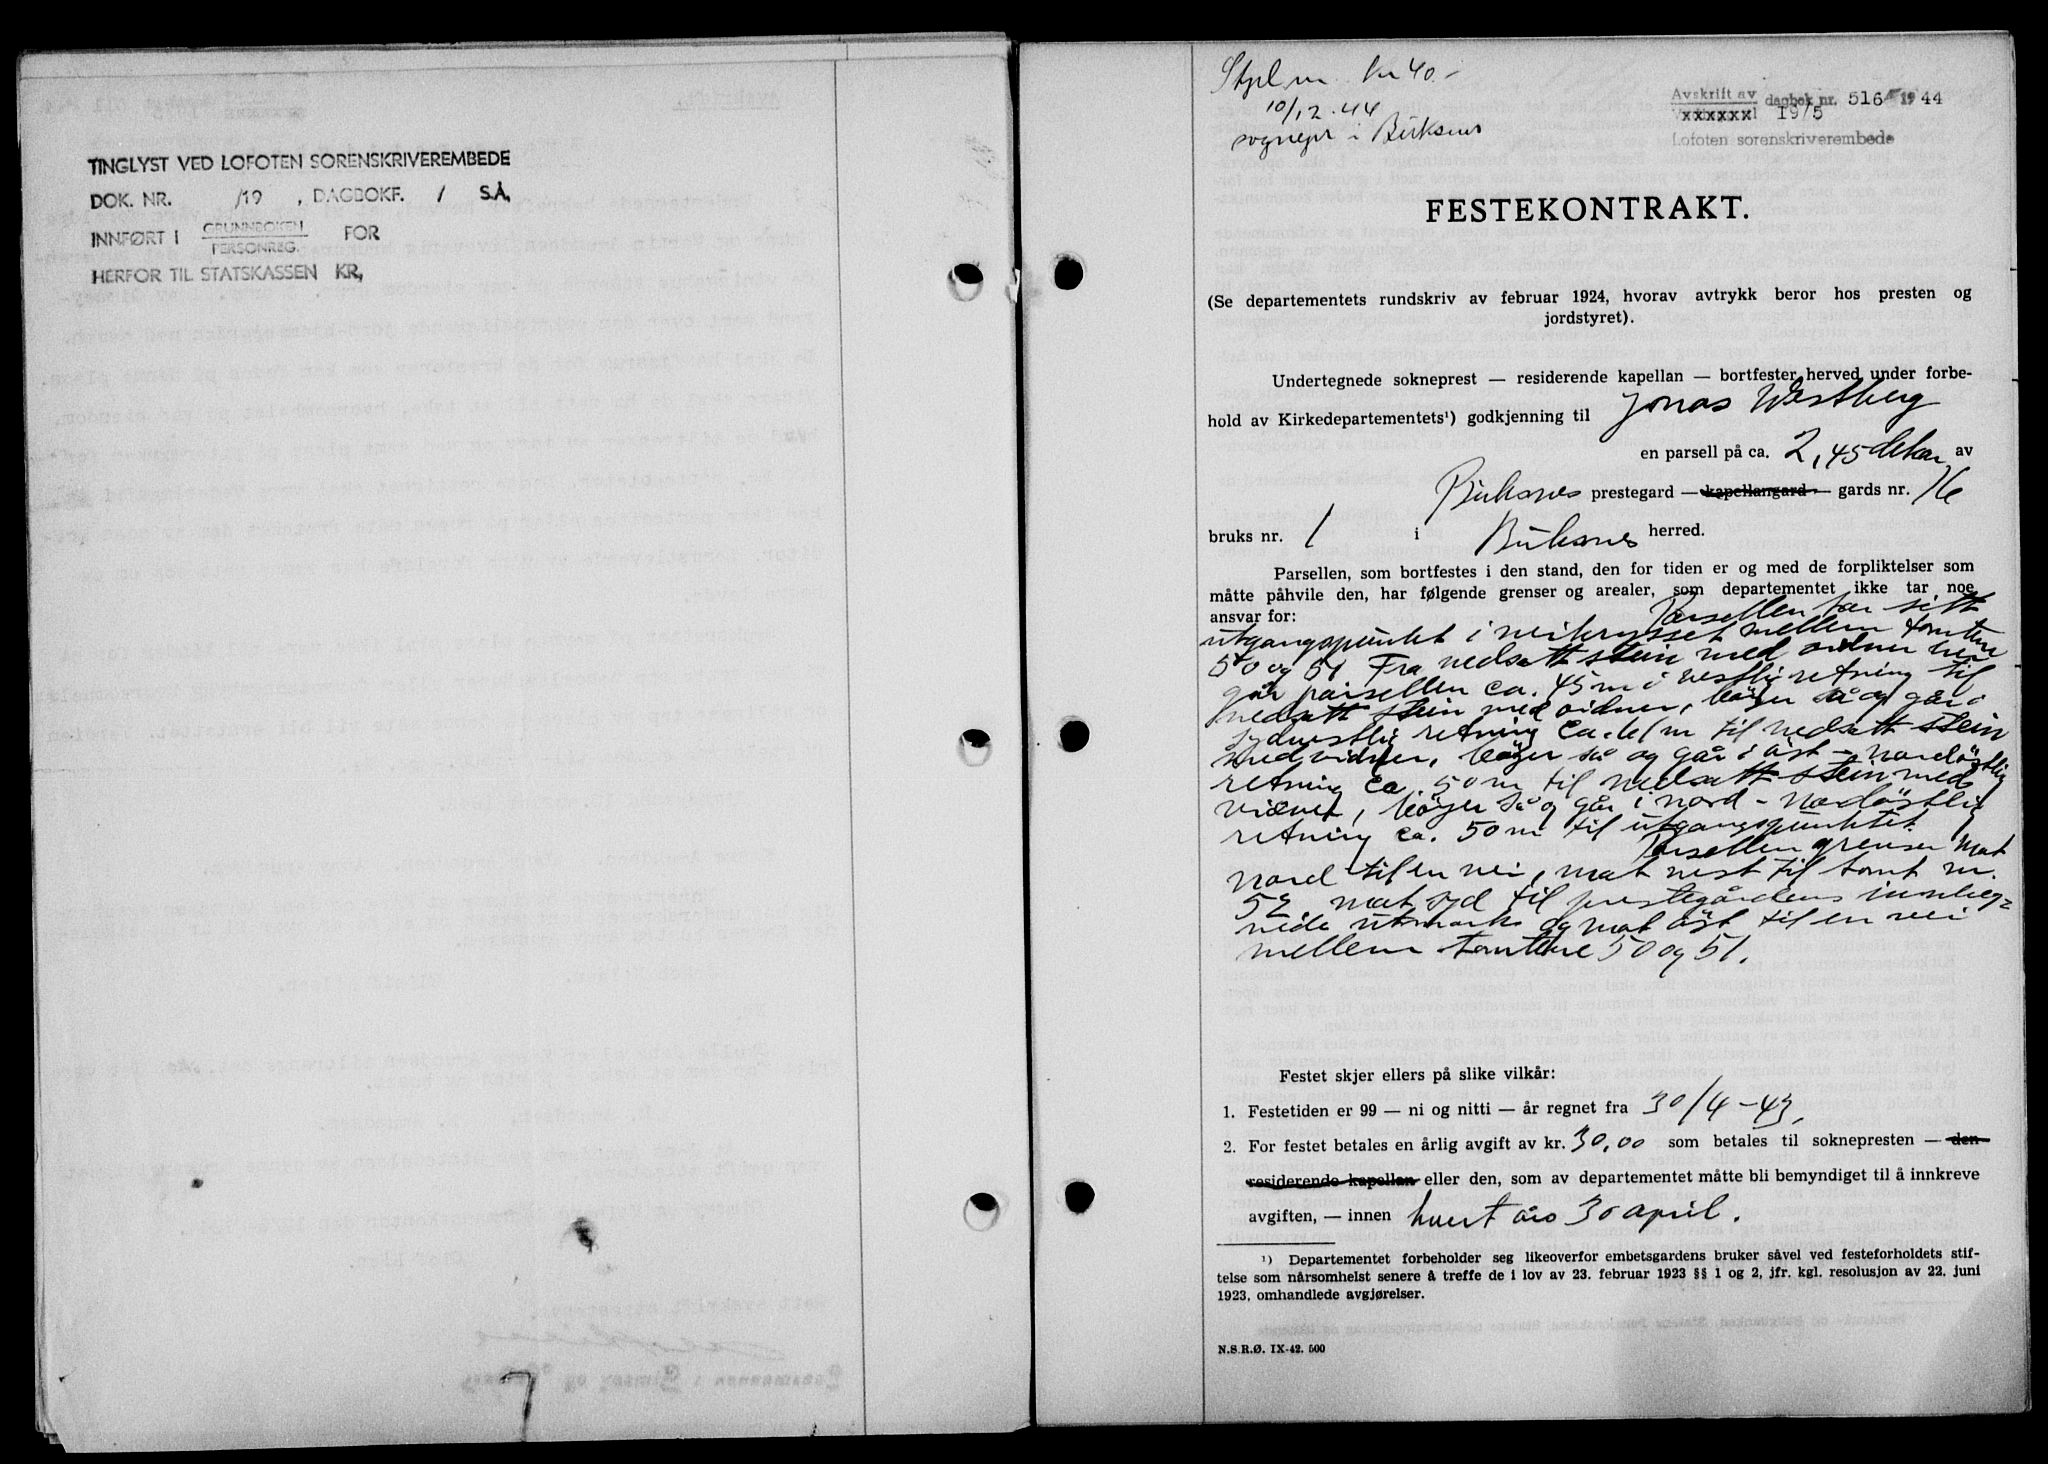 TINGLYST VED LOFOTEN SORENSKRIVEREMBEDE
DOK. NR. /19 , DAGBOKF. / S.Å.
INNFØRT I GRUNNBOKEN FOR
PERSONREG.
HERFOR TIL STATSKASSEN KR,
7
Stpl.m. kr 40.-
10/12.44
sognepr i Buksnes
Avskrift av dagbok nr. 516 1944
xxxxxxl 19/5
Lofoten sorenskriverembede
FESTEKONTRAKT.
(Se departementets rundskriv av februar 1924, hvorav avtrykk beror hos presten og
jordstyret).
Undertegnede sokneprest — residerende kapellan — bortfester herved under forbe-
hold av Kirkedepartementets¹) godkjenning til Jonas Westberg
en parsell på ca. 2,45 dekar av
Buksnes prestegard — kapellangard — gards nr. 16
bruks nr. 1 i Buksnes herred.
Parsellen, som bortfestes i den stand, den for tiden er og med de forpliktelser som
måtte påhvile den, har følgende grenser og arealer, som departementet ikke tar noe
ansvar for: Parsellen tar sitt
utgangspunkt i veikrysset mellem tomtene
50 og 51 Fra nedsatt stein med vidner her
går parsellen ca. 45 m i vestlig retning til
nedsatt stein med vidner, böyer så og går i
sydvestlig retning ca. 61 m til nedsatt stein
med vidner, böyer så og går i öst - nordöstlig
retning ca. 50 m til nedsatt stein med
vidner, böyer så og går i nord - nordöstlig
retning ca. 50 m til utgangspunktet.
Parsellen grenser mot
nord til en vei, mot vest til tomt nr.
52 mot syd til prestegårdens innheg=
nede utmark og mot öst til en vei
mellem tomtene 50 og 51.
Festet skjer ellers på slike vilkår:
1. Festetiden er 99 — ni og nitti — år regnet fra 30/4-43.
2. For festet betales en årlig avgift av kr. 30,00 som betales til soknepresten — den
residerende kapellan eller den, som av departementet måtte bli bemyndiget til å innkreve
avgiften, — innen hvert års 30 april.
¹) Departementet forbeholder seg likeoverfor embetsgardens bruker såvel ved festeforholdets stif-
telse som nårsomhelst senere å treffe de i lov av 23. februar 1923 §§ 1 og 2, jfr. kgl. resolusjon av 22. juni
1923, omhandlede avgjørelser.
N.S.R.Ø. IX-42. 500